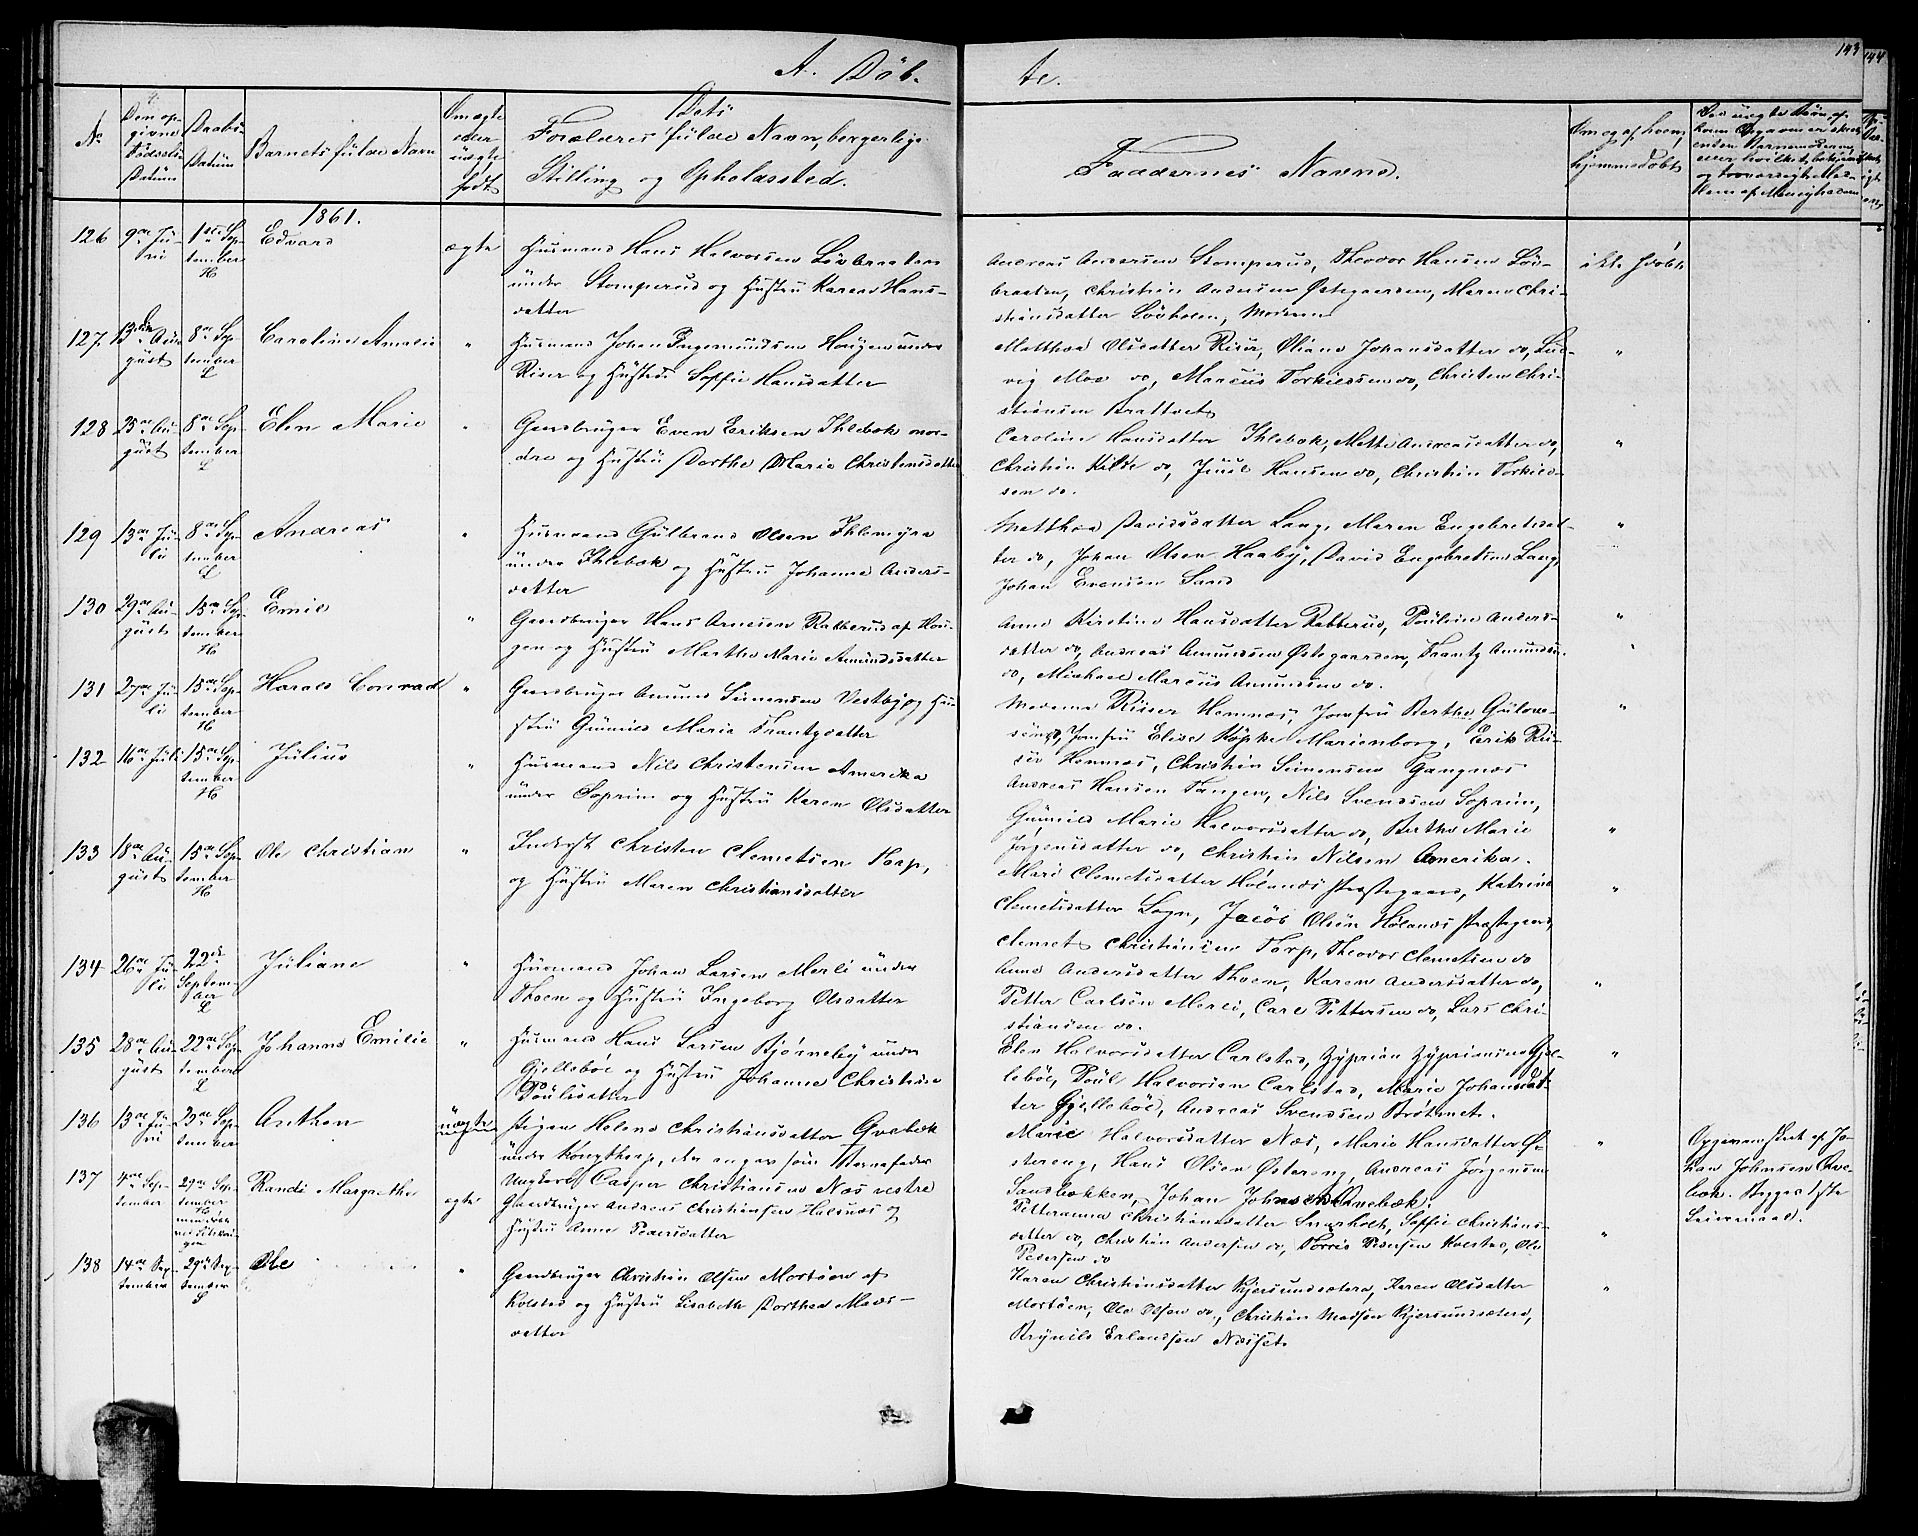 A. Døb-
te.
143
144
No
Den op-
givne
Fødsels
Datum
Daabs-
Datum
Barnets fulde Navn
Om ægte
eller
uægte
født
Dets
Forældres fulde Navn, borgerlige
Stilling og Opholdssted.
Faddernes Navne.
Om og af hvem
hjemmedøbt
1861.
126
9de Ju-
ni
1ste Sep-
tember
H
Edvard
ægte
Husmand Hans Halvorsen Løvbraaten
under Stomperud og Hustru Karen Hans-
datter
Andreas Andersen Stomperud, Theodor Hansen Løv-
braaten, Christian Andersen Østegaarden, Maren Chri-
stiansdatter Løvholen, Moderen
ikke hjdøbt
127
13de Au-
gust
8de Sep-
tember
L
Caroline Amalie
"
Husmand Johan Ingemundsen Hougen under
Riser og Hustru Sophie Hansdatter
Matthea Olsdatter Riser, Oliane Johansdatter do, Lud-
vig Moe do, Marcus Torkildsen do, Christen Chri-
stiansen Brattvet
"
128
25de Au-
gust
8de Sep-
tember
L
Elen Marie
"
Gaardbruger Even Eriksen Ihlebæk nor-
dre og Hustru Dorthe Marie Christensdatter
Caroline Hansdatter Ihlebæk, Mette Andreasdatter do,
Christian Kilde do, Juul Hansen do, Christian Torkild-
sen do.
"
129
13de Ju-
li
8de Sep-
tember
L
Andreas
"
Husmand Gulbrand Olsen Ihlemyra
under Ihlebæk og Hustru Johanne Anders-
datter
Matthea Davidsdatter Lang, Maren Engebretsdat-
ter do, Johan Olsen Haaby, David Engebretsen Lang,
Johan Evensen Sand
"
130
29de Au-
gust
15de Sep-
tember
H
Emil
"
Gaardbruger Hans Arnesen Rakkerud af Hou-
gen og Hustru Marthe Marie Amundsdatter
Anne Kirstine Hansdatter Rakkerud, Pouline Anders-
datter do, Andreas Amundsen Østegaarden, Frantz Amundsen
do, Michael Marcus Amundsen do.
"
131
27de Ju-
li
15de Sep-
tember
H
Harald Conrad
"
Gaardbruger Amund Simensen Vestby og Hu-
stru Gunild Marie Frantzdatter
Madame Riiser Hemnes, Jomfru Berthe Gulove-
sen do, Jomfru Elise Köpke Marienborg, Erik Rii-
ser Hemnes, Christian Simensen Gangnæs
"
132
16de Juli
15de Sep-
tember
H
Julius
"
Husmand Nils Christensen Amerika
under Soprim og Hustru Karen Olsdatter
Andreas Hansen Tangen, Nils Svendsen Soprim,
Gunild Marie Halvorsdatter do, Berthe Marie
Jørgensdatter do, Christian Nilsen Amerika.
"
133
18de Au-
gust
15de Sep-
tember
H
Ole Christian
"
Inderst Christen Clemetsen Torp,
og Hustru Maren Christiansdatter
Mari Clemetsdatter Hølands Præstegaard, Katrine
Clemetsdatter Sogn, Jacob Olsen Hølands Præstegaard,
Clemet Christiansen Torp, Theodor Clemetsen do
"
134
26de Ju-
li
22de
Septem-
ber
L
Juliane
"
Husmand Johan Larsen Merli under
Thoen og Hustru Ingeborg Olsdatter
Anne Andersdatter Thoen, Karen Andersdatter do,
Petter Carlsen Merli, Carl Pettersen do, Lars Chri-
stiansen do.
"
135
28de Au-
gust
22de Sep-
tember
L
Johanne Emilie
"
Husmand Hans Larsen Bjørneby under
Gjellebøe og Hustru Johanne Christine
Poulsdatter
Elen Halvorsdatter Carlstad, Zyprian Zypriansen Gjel-
lebøe, Poul Halvorsen Carlstad, Marie Johansdat-
ter Gjellebøe, Andreas Svendsen Bråtnet.
"
136
13de Ju-
ni
23de Sep-
tember
Anthon
uægte
Pigen Helene Christiansdatter Qvebæk
under Kongthorp, der angav som Barnefader
Ungkarl Casper Christiansen Næs vestre
Marie Halvorsdatter Næs, Marie Hansdatter Ø-
stereng, Hans Olsen Østereng, Andreas Jørgensen
Sandbækken, Johan Johnsen Qvebæk.
"
Opgiven skeet af Jo-
han Johnsen Qve-
bæk. Begges 1ste
Leiermaal.
137
4de Sep-
tember
29de Sep-
tember
H
Randi Margrethe
ægte
Gaardbruger Andreas Christiansen Halsnæs og
Hustru Anne Pedersdatter
Petteranna Christiansdatter Sverholt, Sophie Christians-
datter do, Christian Andersen do, Torris Pedersen Kolstad, Ole
Pedersen do
"
138
14de Sep-
tember
29de Sep-
tember
L
Ole
"
Gaardbruger Christian Olsen Mortøen af
Kolstad og Hustru Lisabeth Dorthea Mads-
datter
Karen Christiansdatter Kjersundsætere, Karen Olsdatter
Mortøen, Ole Olsen do., Christian Madsen Kjersundsætere,
Brynild Erlandsen Næsset.
"